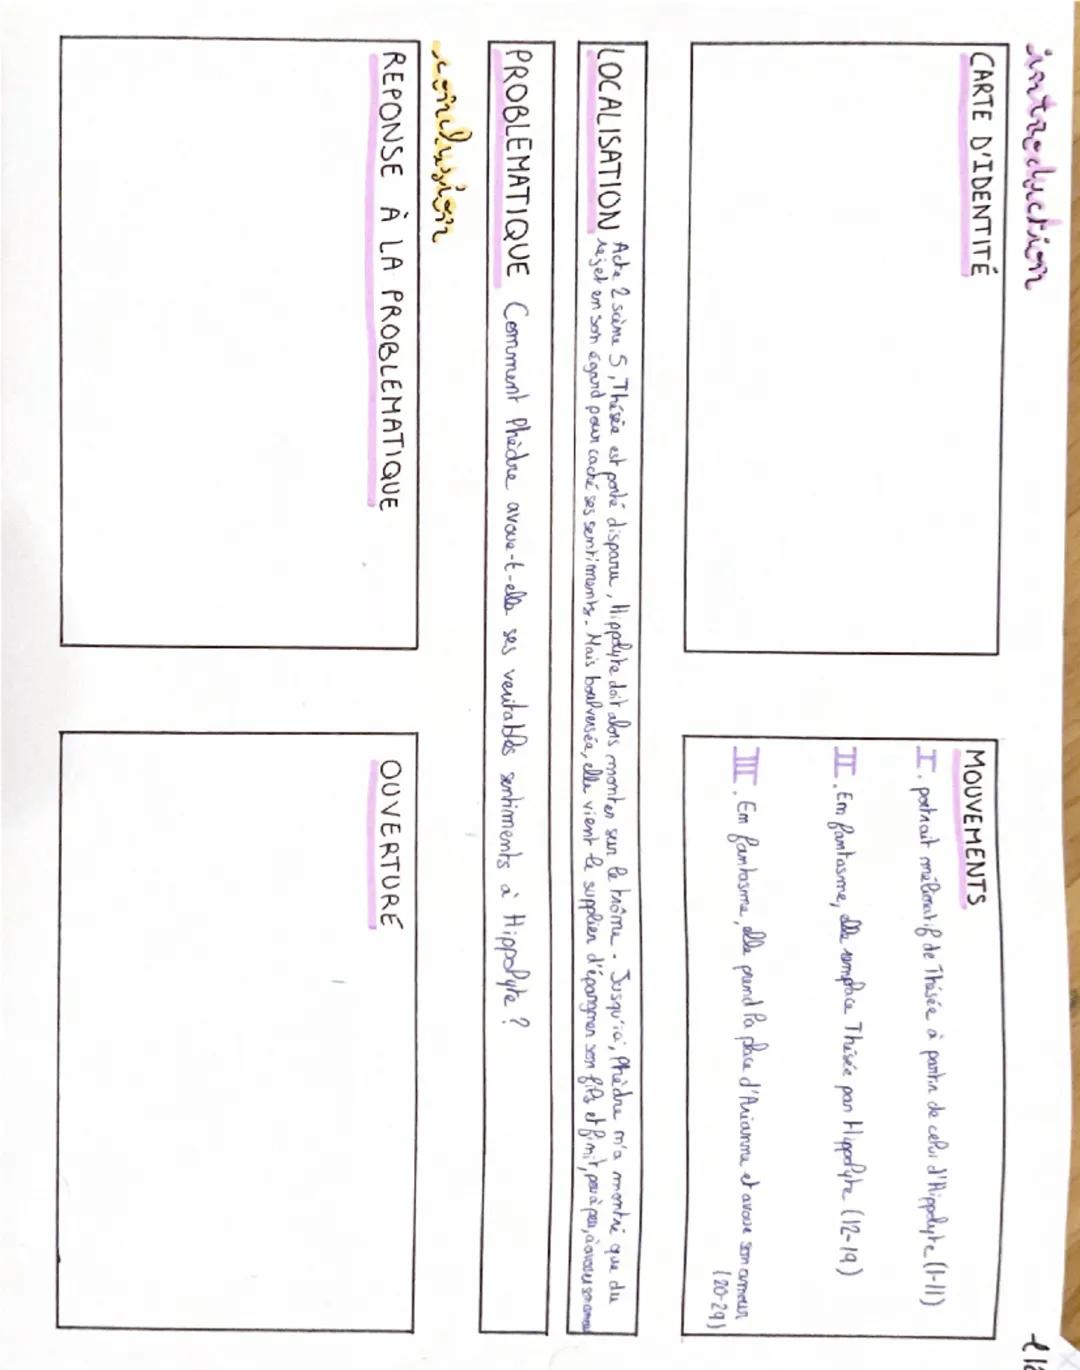 introduction
CARTE D'IDENTITÉ
MOUVEMENTS
I. portrait mélioratif de Thésée à partir de celui d'Hippolyte (1-11)
II. En fantasme, elle remplace Thésée par Hippolyte (12-19)
III. En fantasme, elle prend la place d'Arianne et avoue son amour
(20-29)
LOCALISATION Acte 2 scène 5, Thésée est porté disparu, Hippolyte doit alors monter sur le trône. Jusqu'ici, Phèdre n'a montré que du
rejet en son égard pour caché ses sentiments. Mais boulversée, elle vient le supplier d'épargner son fils et finit, peu à peu, à avouer son amour
PROBLEMATIQUE Comment Phèdre avoue-t-elle ses veritables sentiments à Hippolyte ?
conclusion
REPONSE À LA PROBLEMATIQUE
OUVERTURE